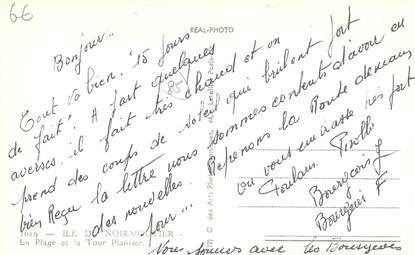 6€
REAL-PHOTO
Bonjour..
Tout va bien. 15 jours
de fait! A part quelques
averses, il fait très chaud et on
prend des coups de soleil qui brûlent fort
bien Reçu la lettre nous sommes contents d'avoir eu
des nouvelles. Reprenons la Route demain
pour...
ou vous embrasse très fort
Bourgeois J
Bourgeois F
1619 - ILE DE NOIRMOUTIER -
La Plage et la Tour Plantier.
Nous sommes avec les Bourgeois